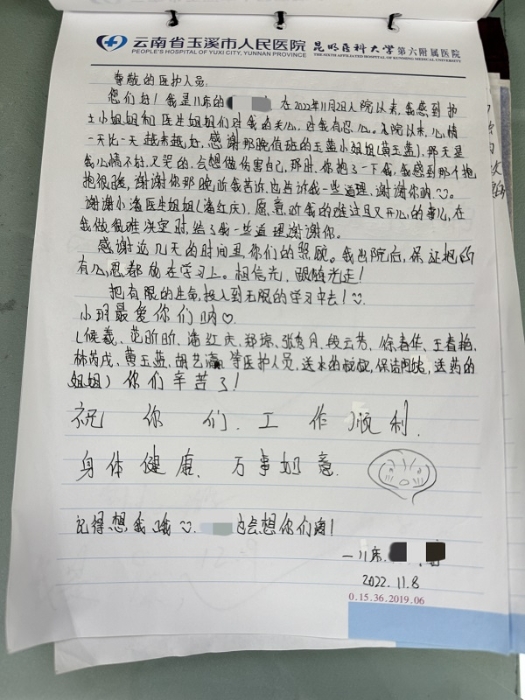 云南省玉溪市人民医院 昆明医科大学第六附属医院
PEOPLE'S HOSPITAL OF YUXI CITY, YUNNAN PROVINCE THE SIXTH AFFILIATED HOSPITAL OF KUNMING MEDICAL UNIVERSITY
尊敬的医护人员:
您们好!我是11床的 在2022年11月2日入院以来,我感到护
士小姐姐和医生姐姐们对我的关心,对我有忍心。入院以来,心情
一天比一天越来越好,感谢那晚值班的玉蓝小姐姐(黄玉蓝),那天是
我心情不好,又哭的,会想做伤害自己,那时,你抱了一下我,我感到那个抱
抱很暖,谢谢你那晚听我苦诉,也告诉我一些道理,谢谢你呐。
谢谢小潘医生姐姐(潘红庆),愿意听我的难过且又开心的事儿,在
我做很难决定时,给了我一些道理谢谢你。
感谢这几天的时间里,你们的照顾。我出院后,保证把所
有心思都放在学习上。相信光,跟随光走!
把有限的生命,投入到无限的学习中去!
小玥最爱你们呐♡
(候羲、范昕昕、潘红庆、郑琼、张 月、段云芳、徐春华、王春梅、
林芮戌、黄玉蓝、胡艺 等医护人员,送水的叔叔,保洁阿姨,送药的
姐姐)你们辛苦了!
祝 你 们:工 作 顺 利.
身体 健 康. 万事如意.
记得想我哦 也会想你们哦!
—11床.
2022.11.8
0.15.36.2019.06